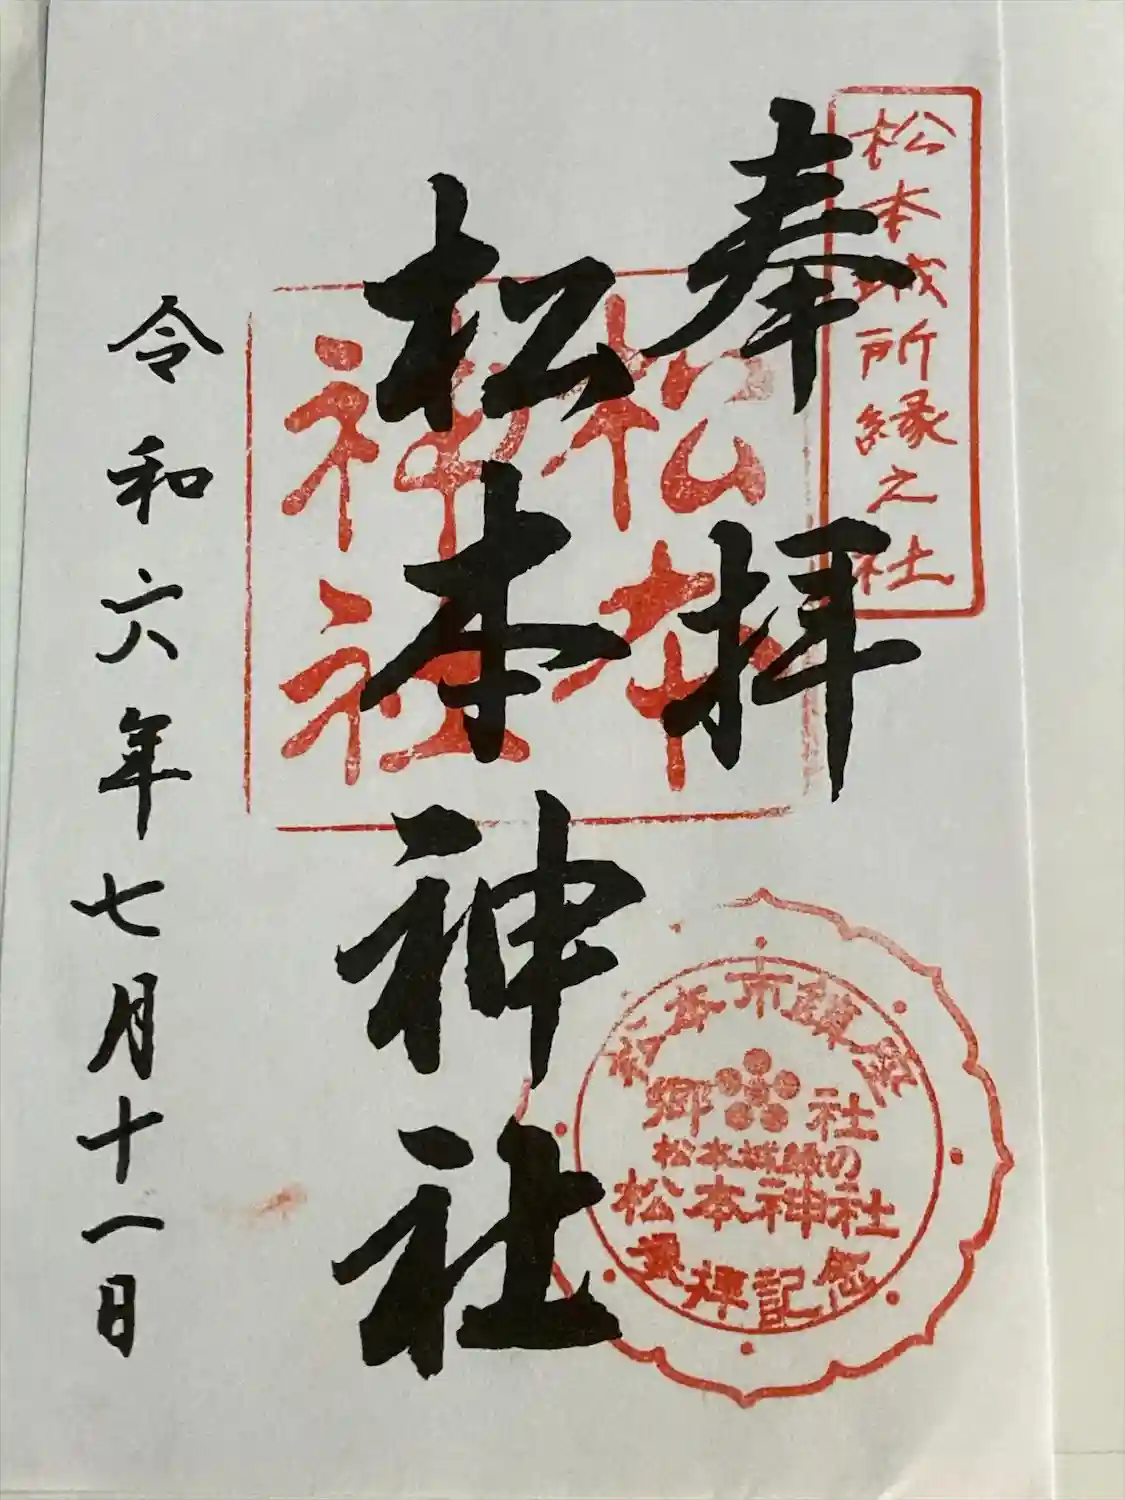 松本城所縁之社
奉拝
松本神社
松本
神社
令和六年七月十一日
松本市鎮座
郷社
松本城縁の
松本神社
参拝記念